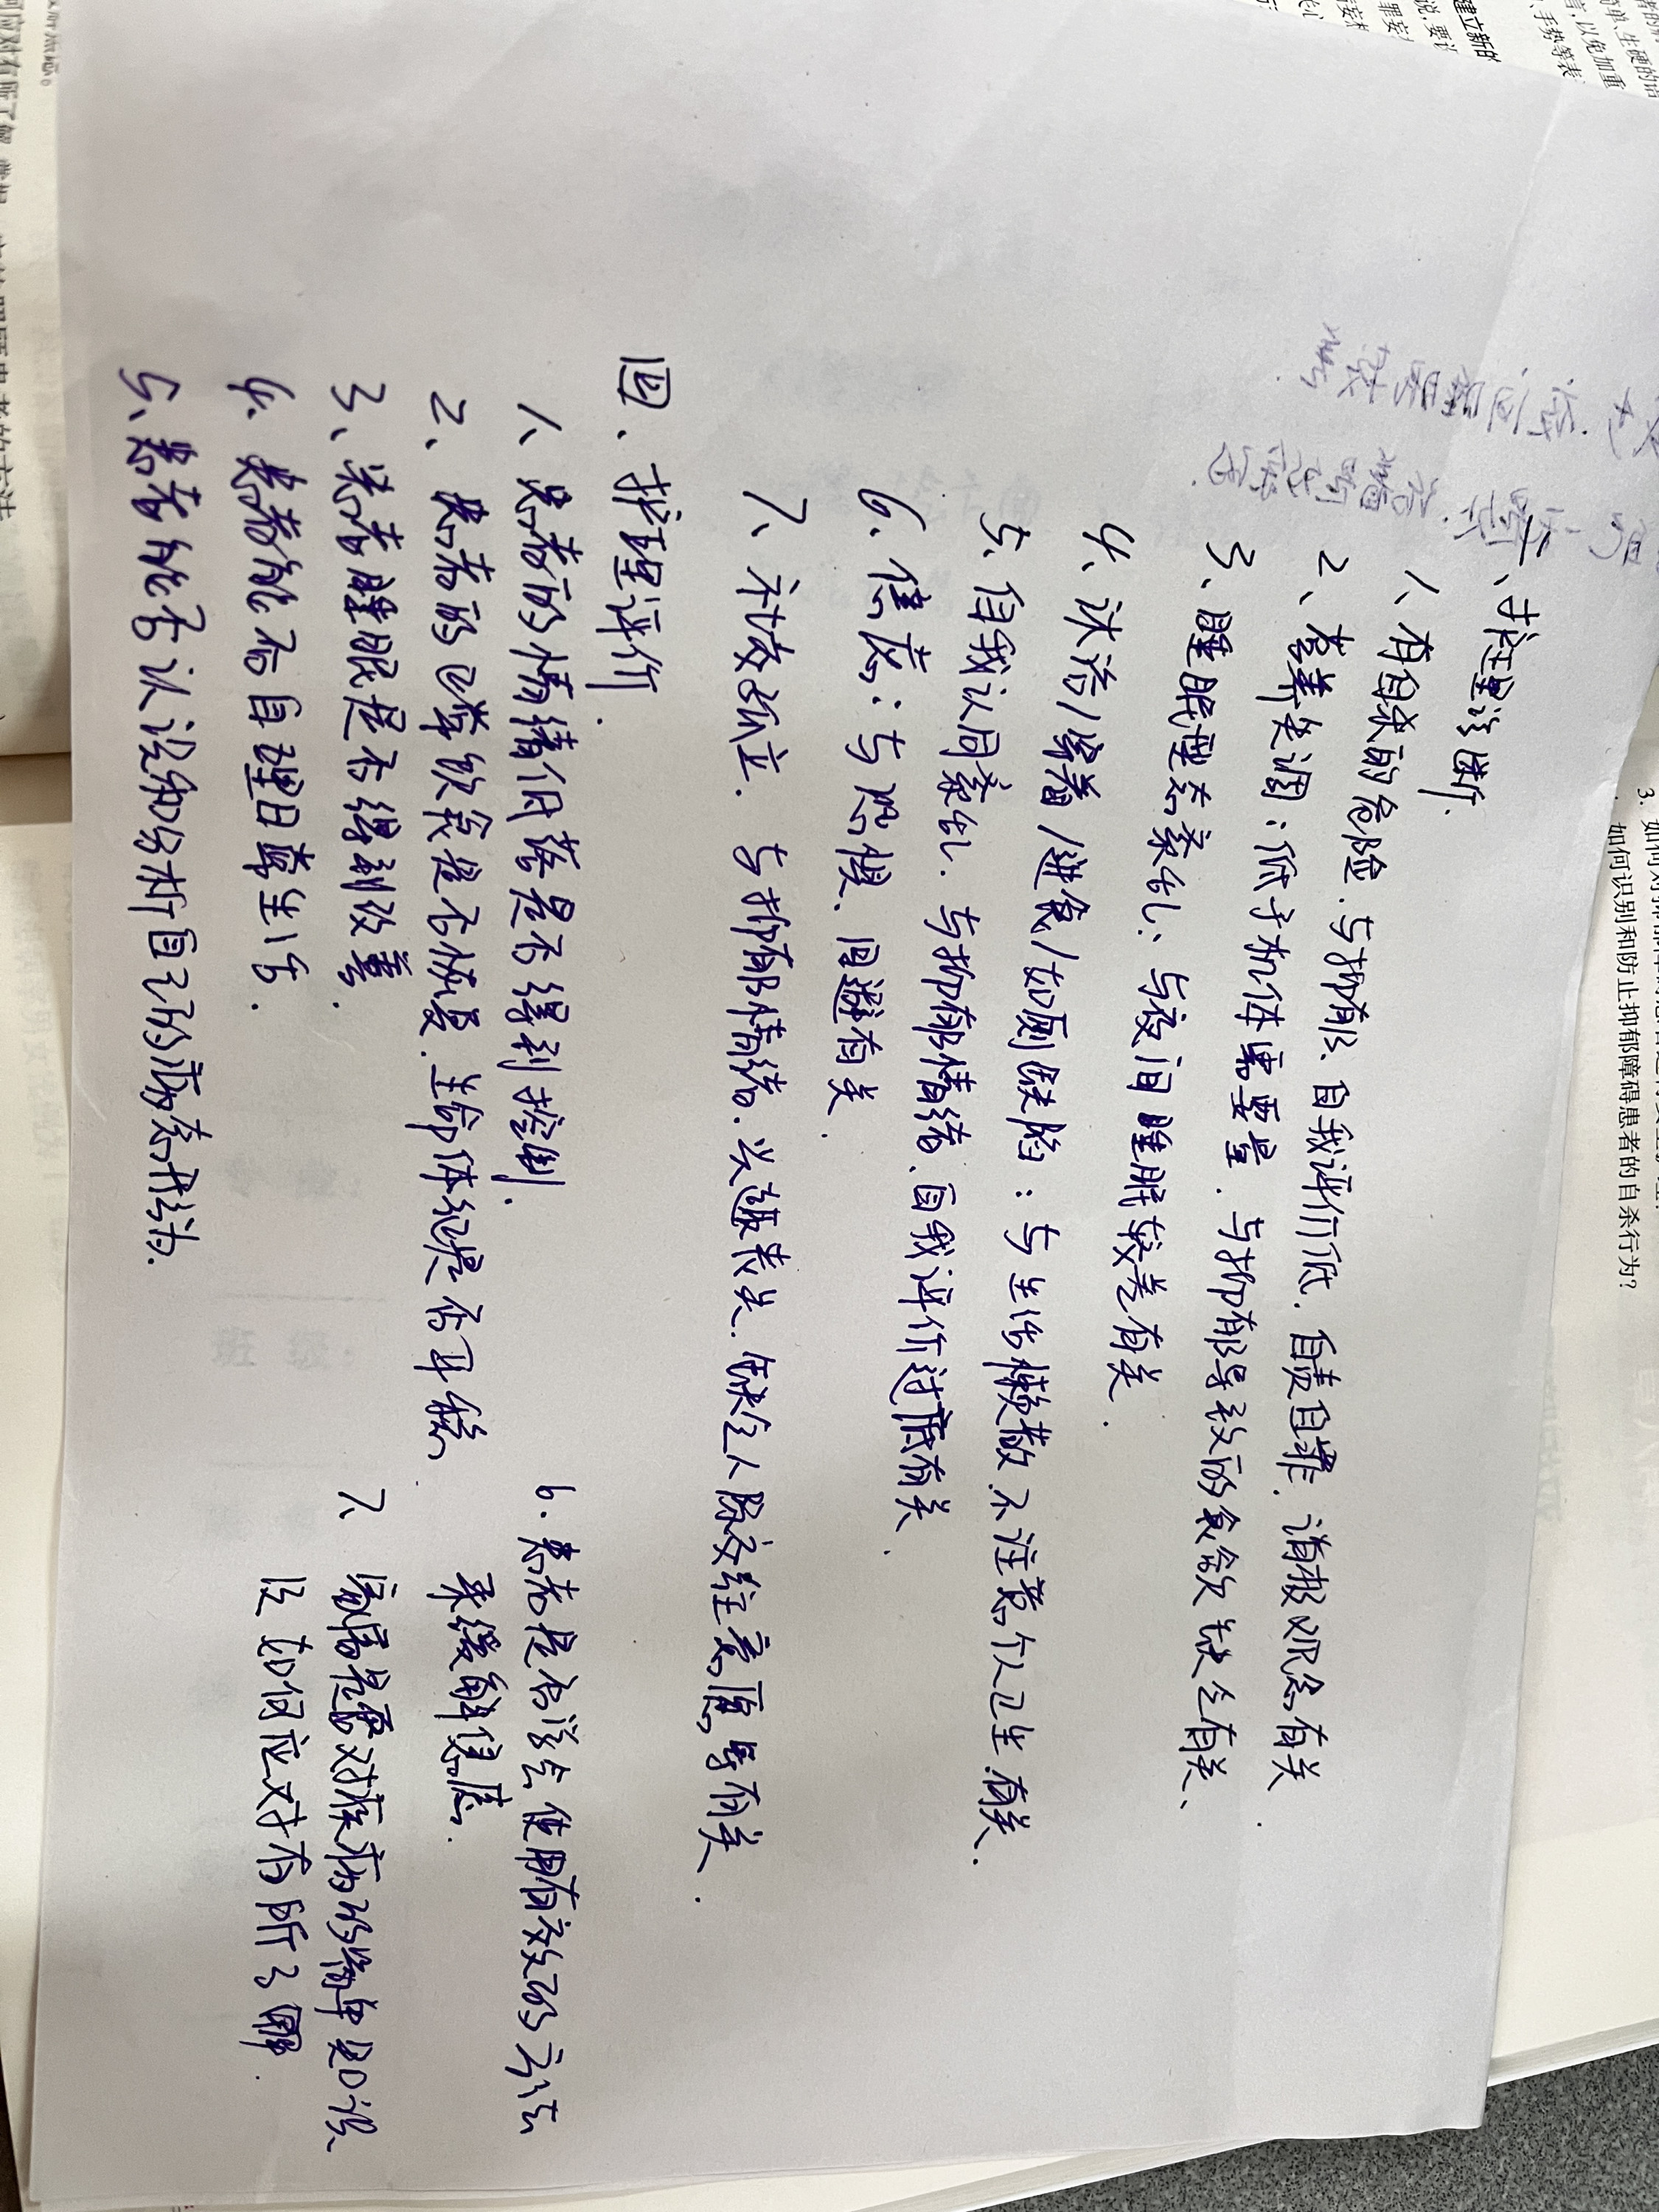 二、护理诊断.
1、有自杀的危险.与抑郁、自我评价低.自责自罪.消极观念有关
2、营养失调:低于机体需要量.与抑郁导致的食欲缺乏有关.
3、睡眠型态紊乱:与夜间睡眠较差有关.
4、沐浴/穿着/进食/如厕缺陷:与生活懒散.不注意个人卫生.有关.
5、自我认同紊乱.与抑郁情绪、自我评价过低有关.
6、焦虑:与恐惧、回避有关.
7、社交孤立.与抑郁情绪.兴趣丧失.缺乏人际交往意愿等有关.
四、护理评价.
1、患者的情绪低落是否得到控制.
2、患者的日常饮食是否恢复.生命体征是否平稳.
3、患者睡眠是否得到改善.
4、患者能否自理日常生活.
5、患者能否认识和分析自己的病态行为.
6.患者是否学会使用有效的方法
来缓解焦虑.
7、家属是否对疾病的简单知识
及如何应对有所了解.
3. 如何对抑郁
如何识别和防止抑郁障碍患者的自杀行为?
建立新的
手势等表
言,以免加重
简单、生硬的语
何应对有所了解